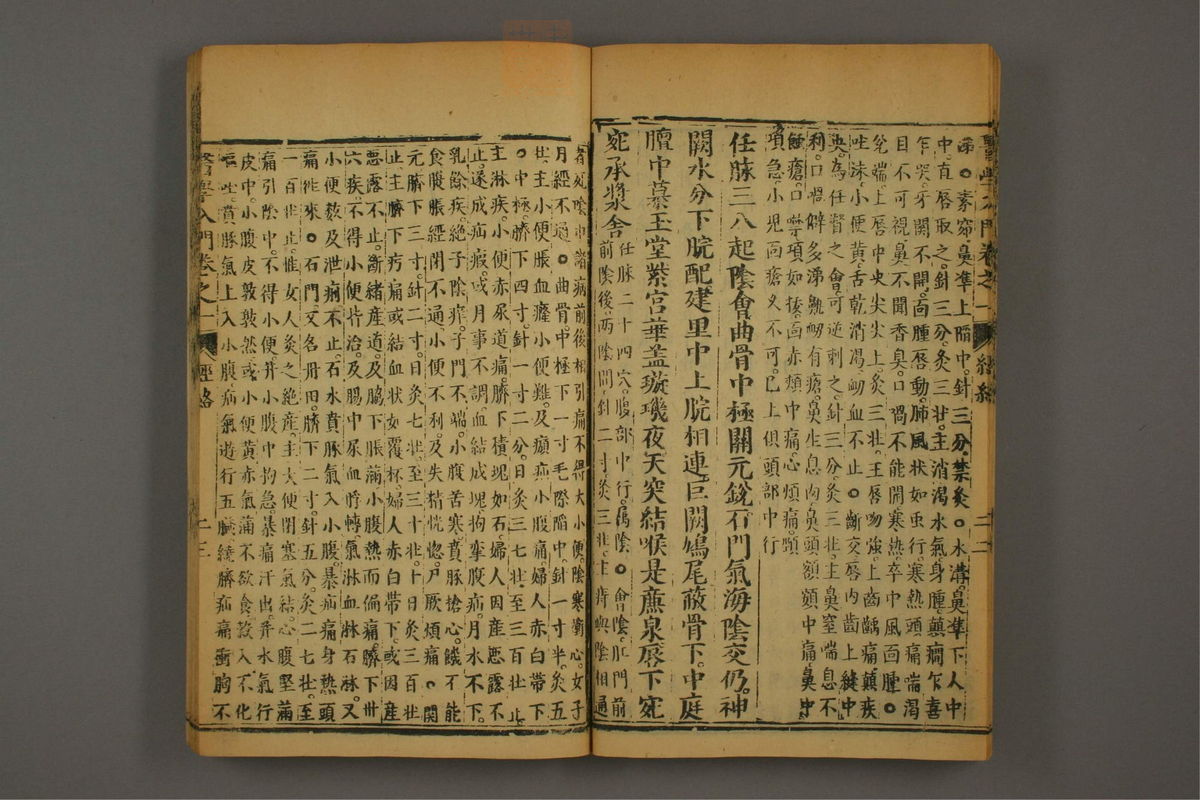 醫學入門卷之一 經絡 二二
涕○素窌鼻準上陷中針三分禁灸○水溝鼻準下人中
中直唇取之針三分灸三壮主消渴水氣身腫癲癇乍喜
乍哭牙關不開面腫唇動肺風状如虫行寒熱頭痛喘渴
目不可視鼻不聞香臭口喎不能開寒熱卒中風面腫○
兊端上唇中央尖尖上灸三壮主唇吻強上齒齲痛癲疾
吐沫小便黄舌乾消渴衂血不止○齗交唇内齒上縫中
央為任督之會可逆刺之針三分灸三壮主鼻窒喘息不
利口喎僻多涕鼽衂有瘡鼻生息肉鼻頭額頞中痛鼻中
蝕瘡口噤項如拔面赤頬中痛心煩痛頸
項急小児面瘡久不可已上倶頭部中行
任脉三八起陰會曲骨中極關元銳石門氣海陰交仍神
闕水分下脘配建里中上脘相連巨闕鳩尾蔽骨下中庭
膻中慕玉堂紫宫華蓋璇璣夜天突結喉是廉泉唇下宛
宛承漿舍
任脉二十四穴腹部中行属陰○會陰肛門前
前陰後兩陰間針二寸灸三壮主痔與陰相通
者死陰中諸病前後相引痛不得大小便陰寒衝心女子
月經不通○曲骨中極下一寸毛際陷中針一寸半灸五
壮主小便脹血癃小便難及㿗疝小腹痛婦人赤白帯下
○中極臍下四寸針一寸二分日灸三七壮至三百壮止
主淋疾小便赤尿道痛臍下積塊如石婦人因産悪露不
止遂成疝瘕或月事不調血結成塊拘挛腹疝月水不下
乳餘疾絶子陰痒子門不端小腹苦寒賁豚搶心饑不能
食腹脹經閉不通小便不利及失精恍惚尸厥煩痛○關
元臍下三寸針二寸日灸七壮至三十壮十日灸三百壮
止主臍下㽲痛或結血状如覆杯婦人赤白帯下或因産
悪露不止斷緒産道及脇下脹滿小腹熱而偏痛臍下卅
六疾不得小小便皆治及腸中尿血胞轉氣淋血淋石淋又
小便数及泄痢不止石水賁豚氣入小腹暴疝痛身熱頭
痛徃來○石門又名丹田臍下二寸針五分灸二七壮至
一百壮止惟女人灸之絶産主大便閉寒氣結心腹堅滿
痛引陰中不得小便并小腹中拘急暴痛汗出并水氣行
皮中小腹皮敦敦然或小便黄赤氣滿不欲食穀入不化
嘔吐賁豚氣上入小腹病氣遊行五臟繞臍疝痛衝胸不
醫學入門卷之一 經絡 二三